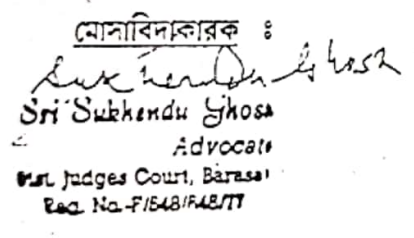 মোসাবিদাকারক :
Sukhendu Ghosh
Sri Sukhendu Ghosh
Advocate
Dist. Judges Court, Barasat
Reg. No-F/548/548/77